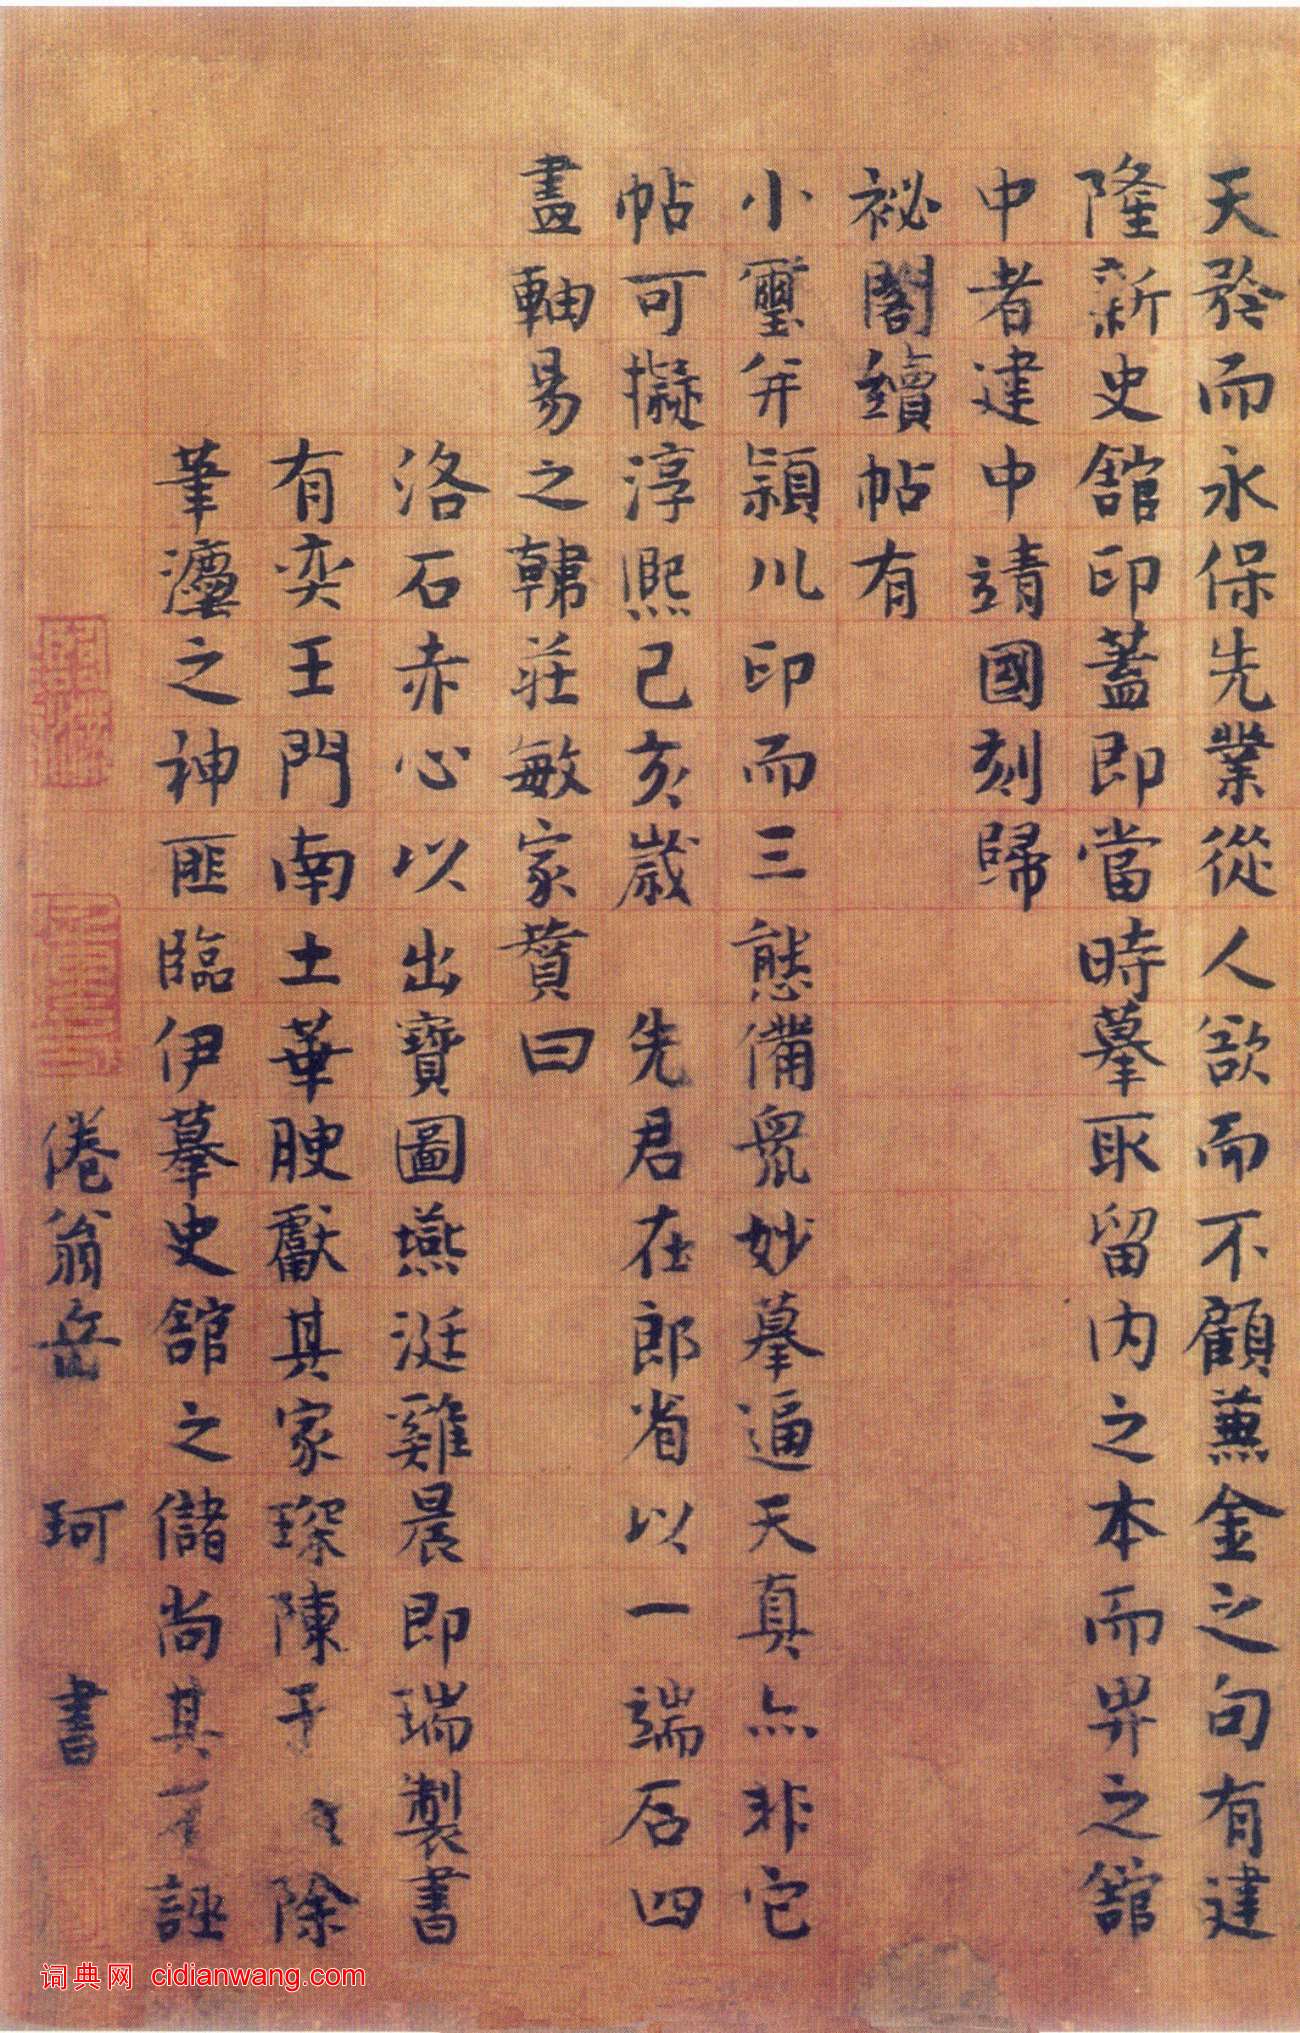 天發而永保先業從人欲而不顧兼金之句有建
隆新史館印蓋即當時摹取留内之本而畀之館
中者建中靖國刻歸
祕閣續帖有
小璽并潁川印而三態備衆妙摹逼天真亦非它
帖可擬淳熙己亥歲 先君在郎省以一端石四
畫軸易之韓莊敏家贊曰
洛石赤心以出寶圖燕涎雞晨即瑞製書
有奕王門南土華腴獻其家琛陳于 除
筆灋之神匪臨伊摹史館之儲尚其 誣
倦翁岳 珂 書
词典网 cidianwang.com